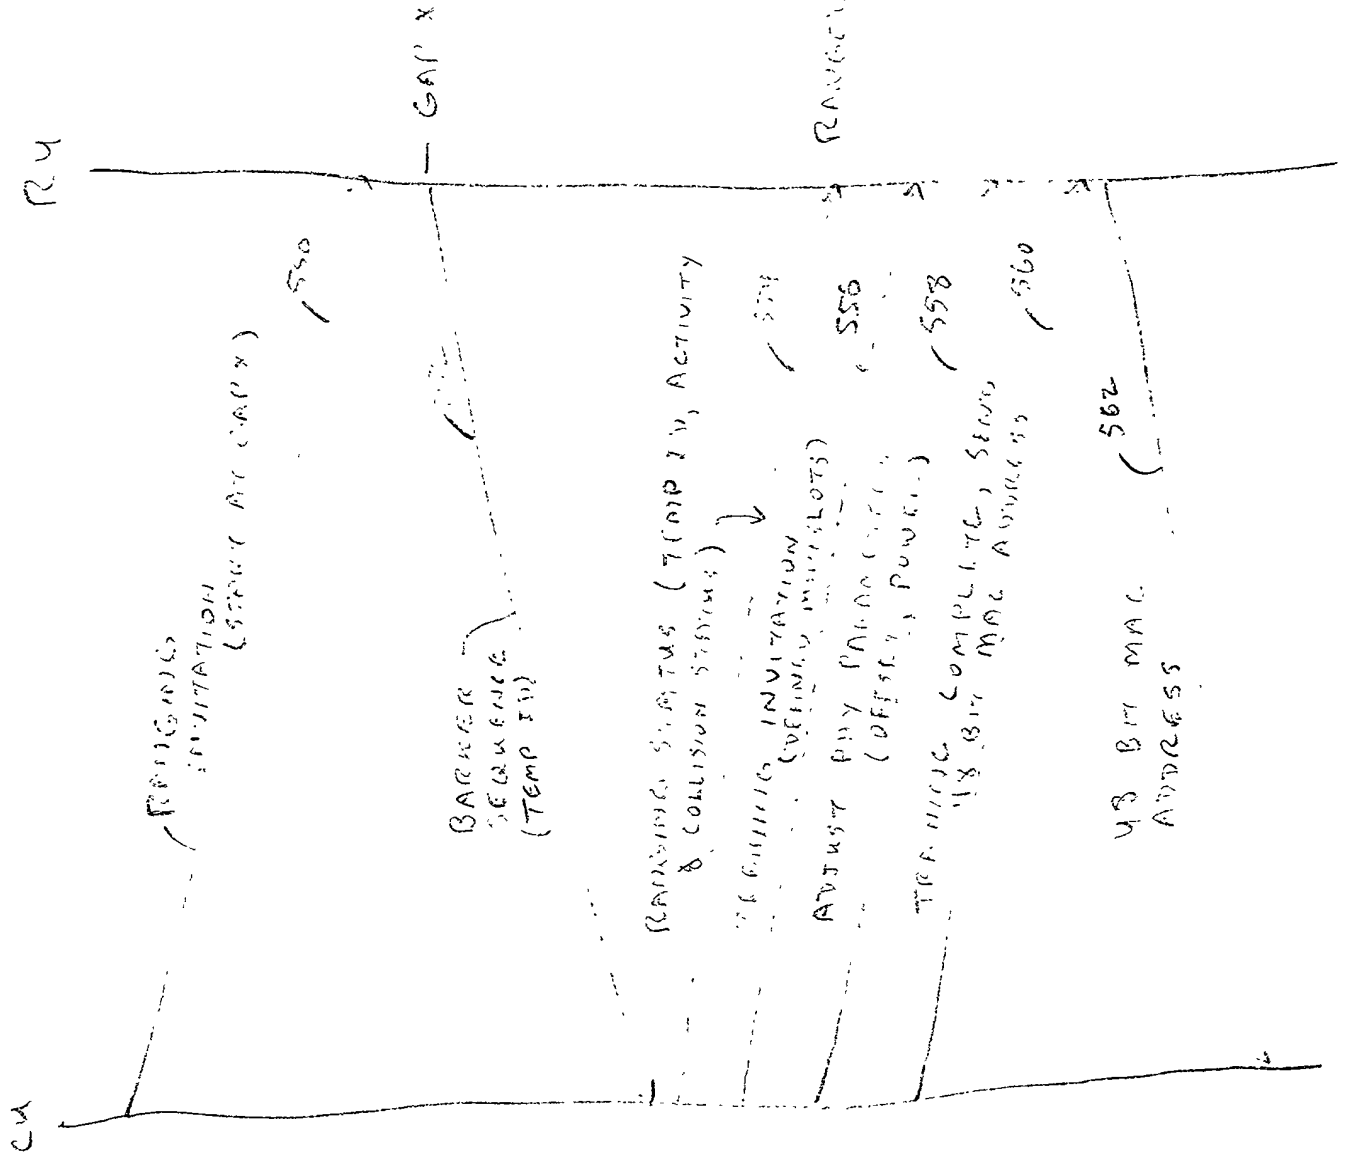 CU
RU
RANGING
INVITATION
(START AT GAP X)
540
GAP X
BARKER
SEQUENCE
(TEMP ID)
RANGING STATUS (TEMP ID, ACTIVITY
& COLLISION STATUS)
TRAINING INVITATION
(DEFINED MINISLOTS)
556
ADJUST PHY
(OFFSET, POWER)
558
TRAINING COMPLETE, SEND
48 BIT MAC ADDRESS
560
562
48 BIT MAC
ADDRESS